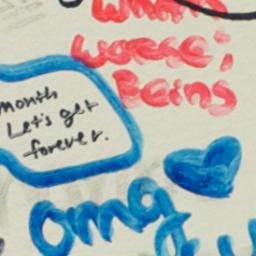 worse:
Being
month
Let's get
forever.
omg